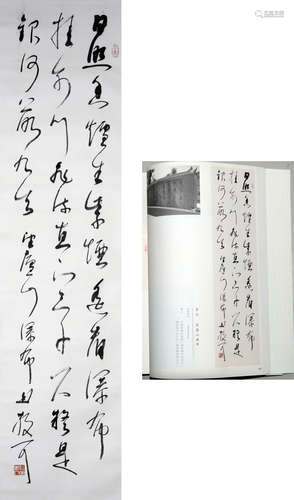 日照香爐生紫煙遙看瀑布
挂前川飛流直下三千尺疑是
銀河落九天望廬山瀑布
日照香爐生紫煙遙看瀑布
挂前川飛流直下三千尺疑是
銀河落九天望廬山瀑布